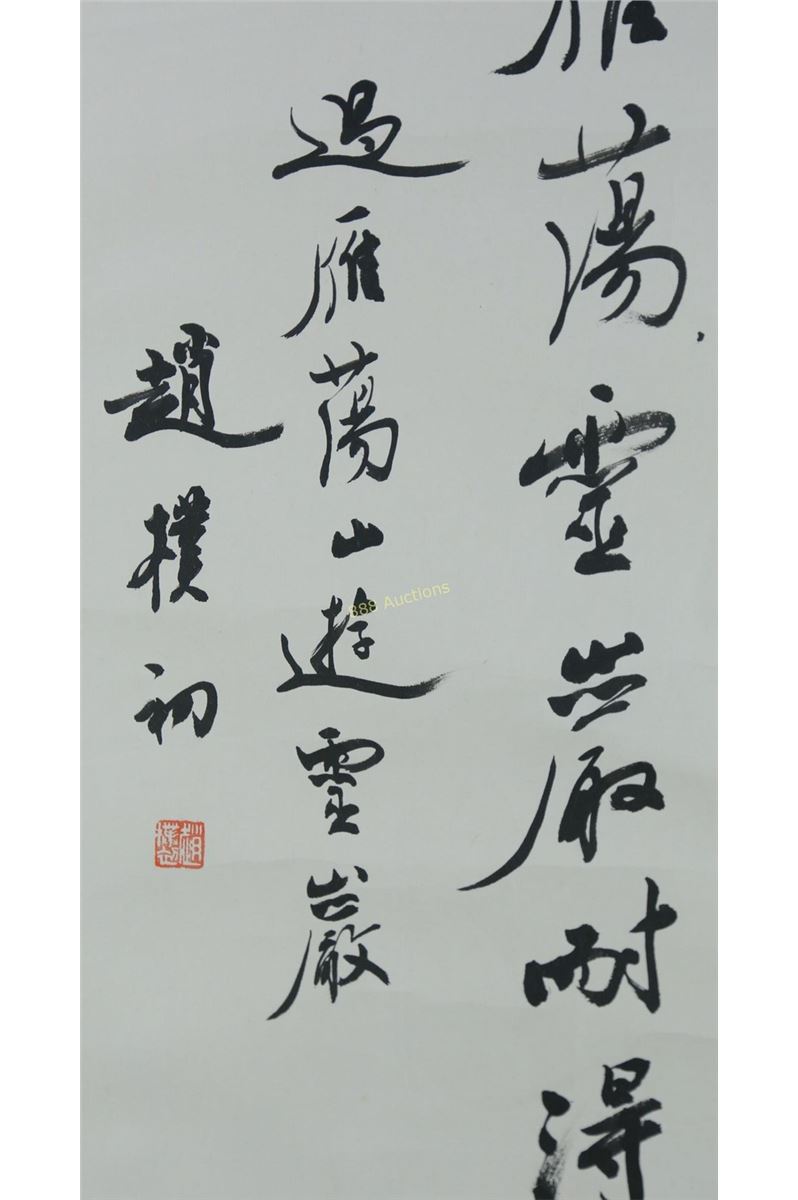 雁蕩靈巖耐得
過雁蕩山遊靈巖
趙樸初
趙樸初
888 Auctions